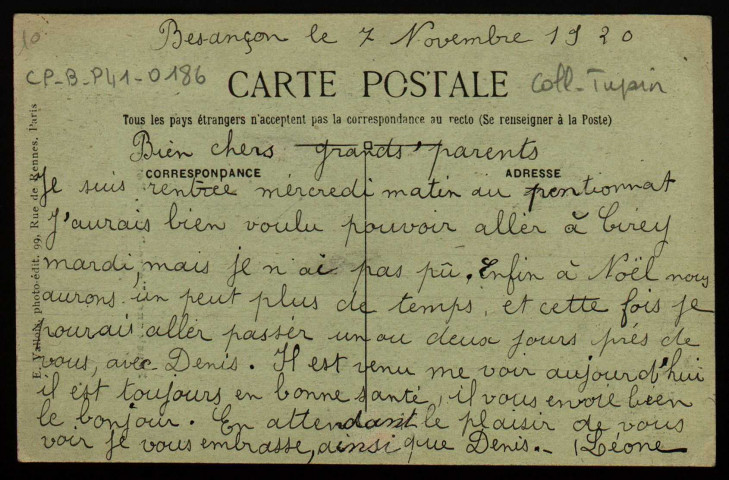 10
Besançon le 7 Novembre 1920
CP-B-P41-0186
CARTE POSTALE
Coll-Tupin
Tous les pays étrangers n'acceptent pas la correspondance au recto (Se renseigner à la Poste)
Bien chers grands'parents
CORRESPONDANCE
ADRESSE
Je suis rentrée mércredi matin au pentionnat
J'aurais bien voulu pouvoir aller à Cirey
mardi, mais je n'ai pas pû. Enfin à Noël nous
aurons un peut plus de temps, et cette fois je
pourais aller passér un ou deux jours prés de
vous, avec Denis. Il est venu me voir aujourd'hui
il est toujours en bonne santé, il vous envoie bien
le bonjour. En attendant le plaisir de vous
voir je vous embrasse, ainsi que Denis. - Léone
E. Vallois, photo-édit. 99, Rue de Rennes, Paris